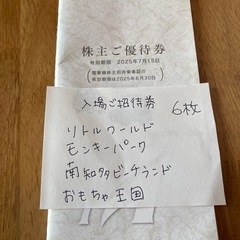 株主ご優待券
有効期限 2025年7月15日
電車線株主招待乗車証の
有効期限は2025年6月30日
入場ご招待券 6枚
リトルワールド
モンキーパーク
南知多ビーチランド
おもちゃ王国